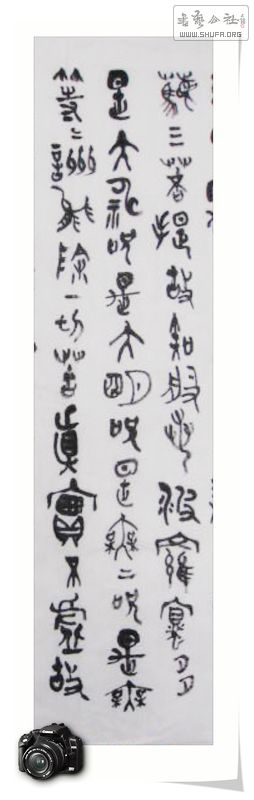 书艺公社
WWW.SHUFA.ORG
藐三菩提故知般若波羅蜜多
是大神咒是大明咒是無上咒是無
等等咒能除一切苦真實不虛故